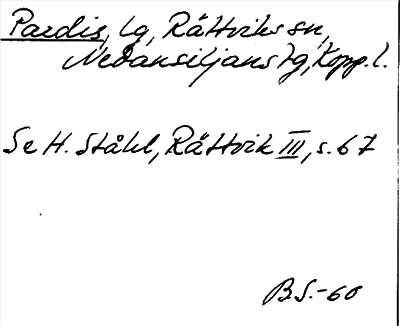 Pardis, lg, Rättviks sn,
Nedansiljans tg, Kopp. l.
Se H. Ståhl, Rättvik III, s. 67
B S. - 60